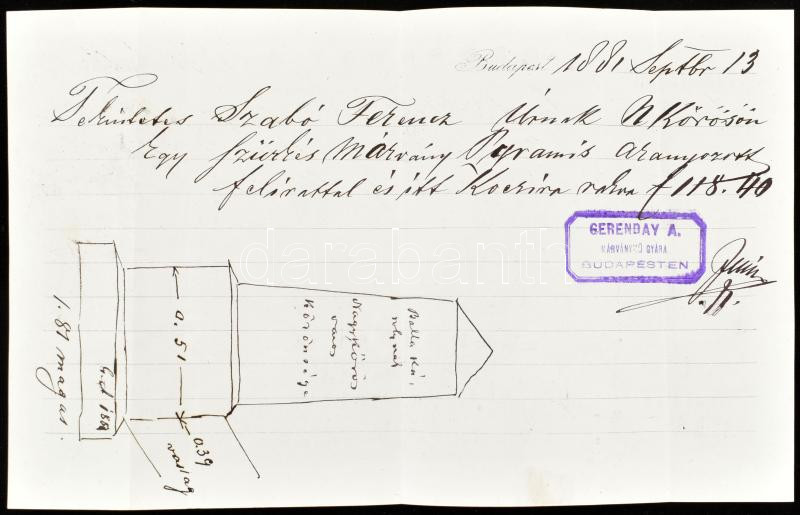 Budapest 1881 Septbr 13
Tekintetes Szabó Ferencz Úrnak N Körösön
Egy szürkés Márvány Pyramis aranyozott
felirattal és itt Kocsira rakva f 118.40
GERENDAY A.
MÁRVÁNYMŰ GYÁRA
BUDAPESTEN
Balla Ká,
rolynak
Nagykőrös
város
Közönsége
0.51
0.39
vastag
1.87 magas.
darabanth